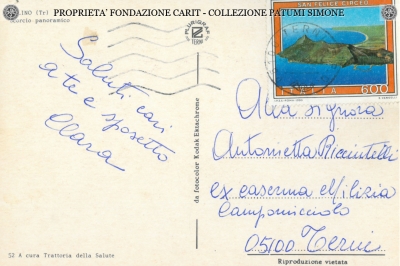 PROPRIETA' FONDAZIONE CARIT - COLLEZIONE FATUMI SIMONE
LINO (Tr)
Scorcio panoramico
PLURIGRAF
TERNI
SAN FELICE CIRCEO
ITALIA 600
Saluti cari
a te e sposetto
Clara
da fotocolor Kodak Ektachrome
Alla signora
Antonietta Riccintelli
ex caserma Milizia
Campomicciolo
05100 Terni
52 A cura Trattoria della Salute
Riproduzione vietata